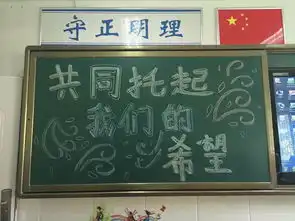 守正明理
共同托起
我们的
希望